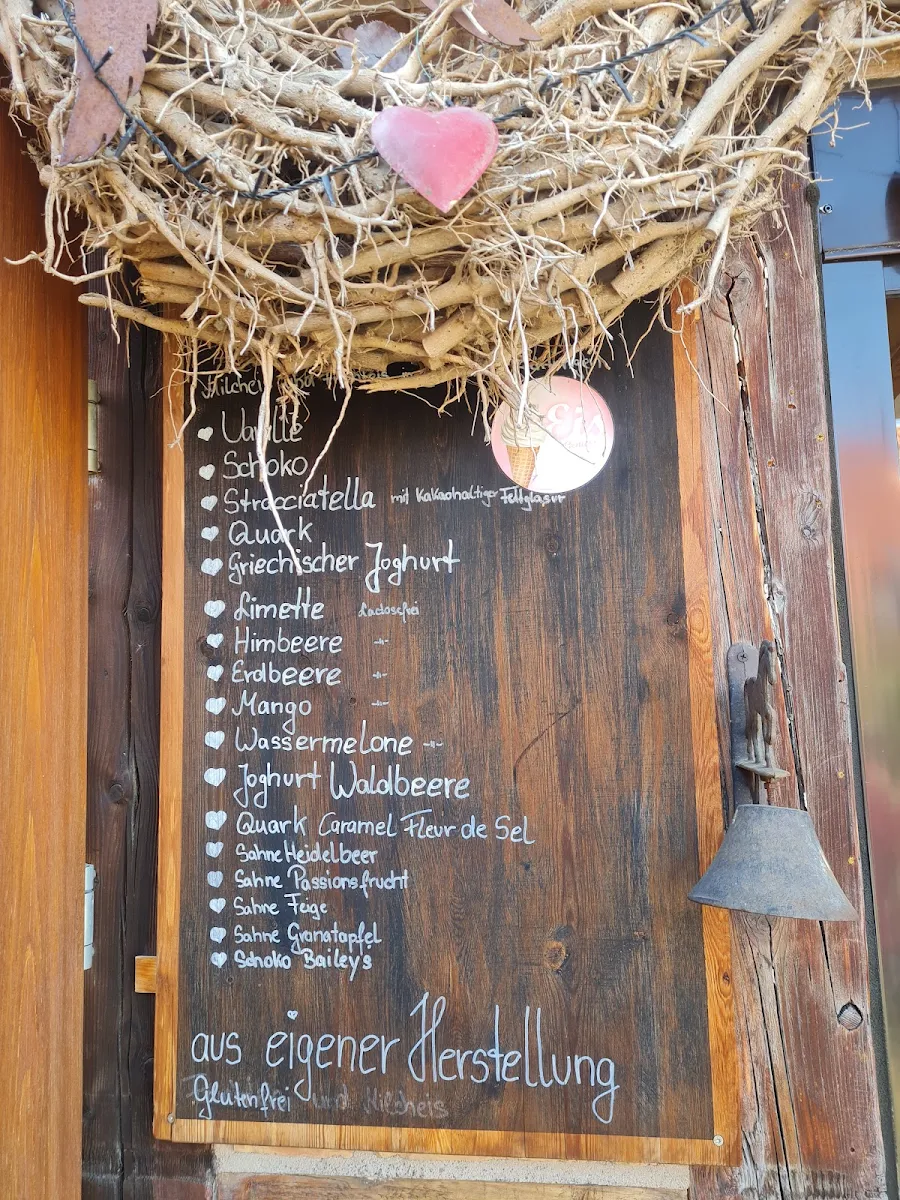 Eis
Vanille
Schoko
Stracciatella mit kakaohaltiger Fettglasur
Quark
Griechischer Joghurt
Limette Lactosefrei
Himbeere -"-
Erdbeere -"-
Mango -"-
Wassermelone -"-
Joghurt Waldbeere
Quark Caramel Fleur de Sel
Sahne Heidelbeer
Sahne Passionsfrucht
Sahne Feige
Sahne Granatapfel
Schoko Bailey's
aus eigener Herstellung
Glutenfrei und Milcheis